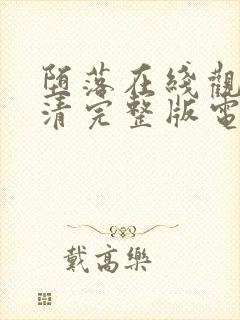 堕落在綫觀
清完整版電
戴高樂